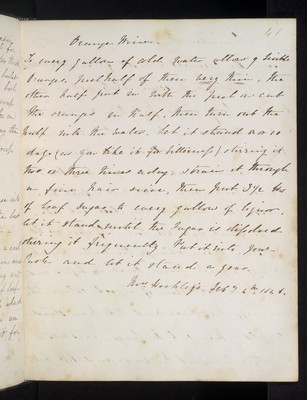 41
Orange Wine.
To every gallon of cold water allow 9 Seville
Oranges, peel half of them very thin, the
other half put in with the peel on cut
the oranges in half, then turn out the
pulp into the water. let it stand 8 or 10
days (as you like it for bitterness) stirring it
two or three times a day, strain it through
a fine hair sieve, then put 3½ lbs
of loaf Sugar to every gallon of liquor,
let it stand until the Sugar is dissolved
stirring it frequently. Put it into your
Cask and let it stand a year.
Feby